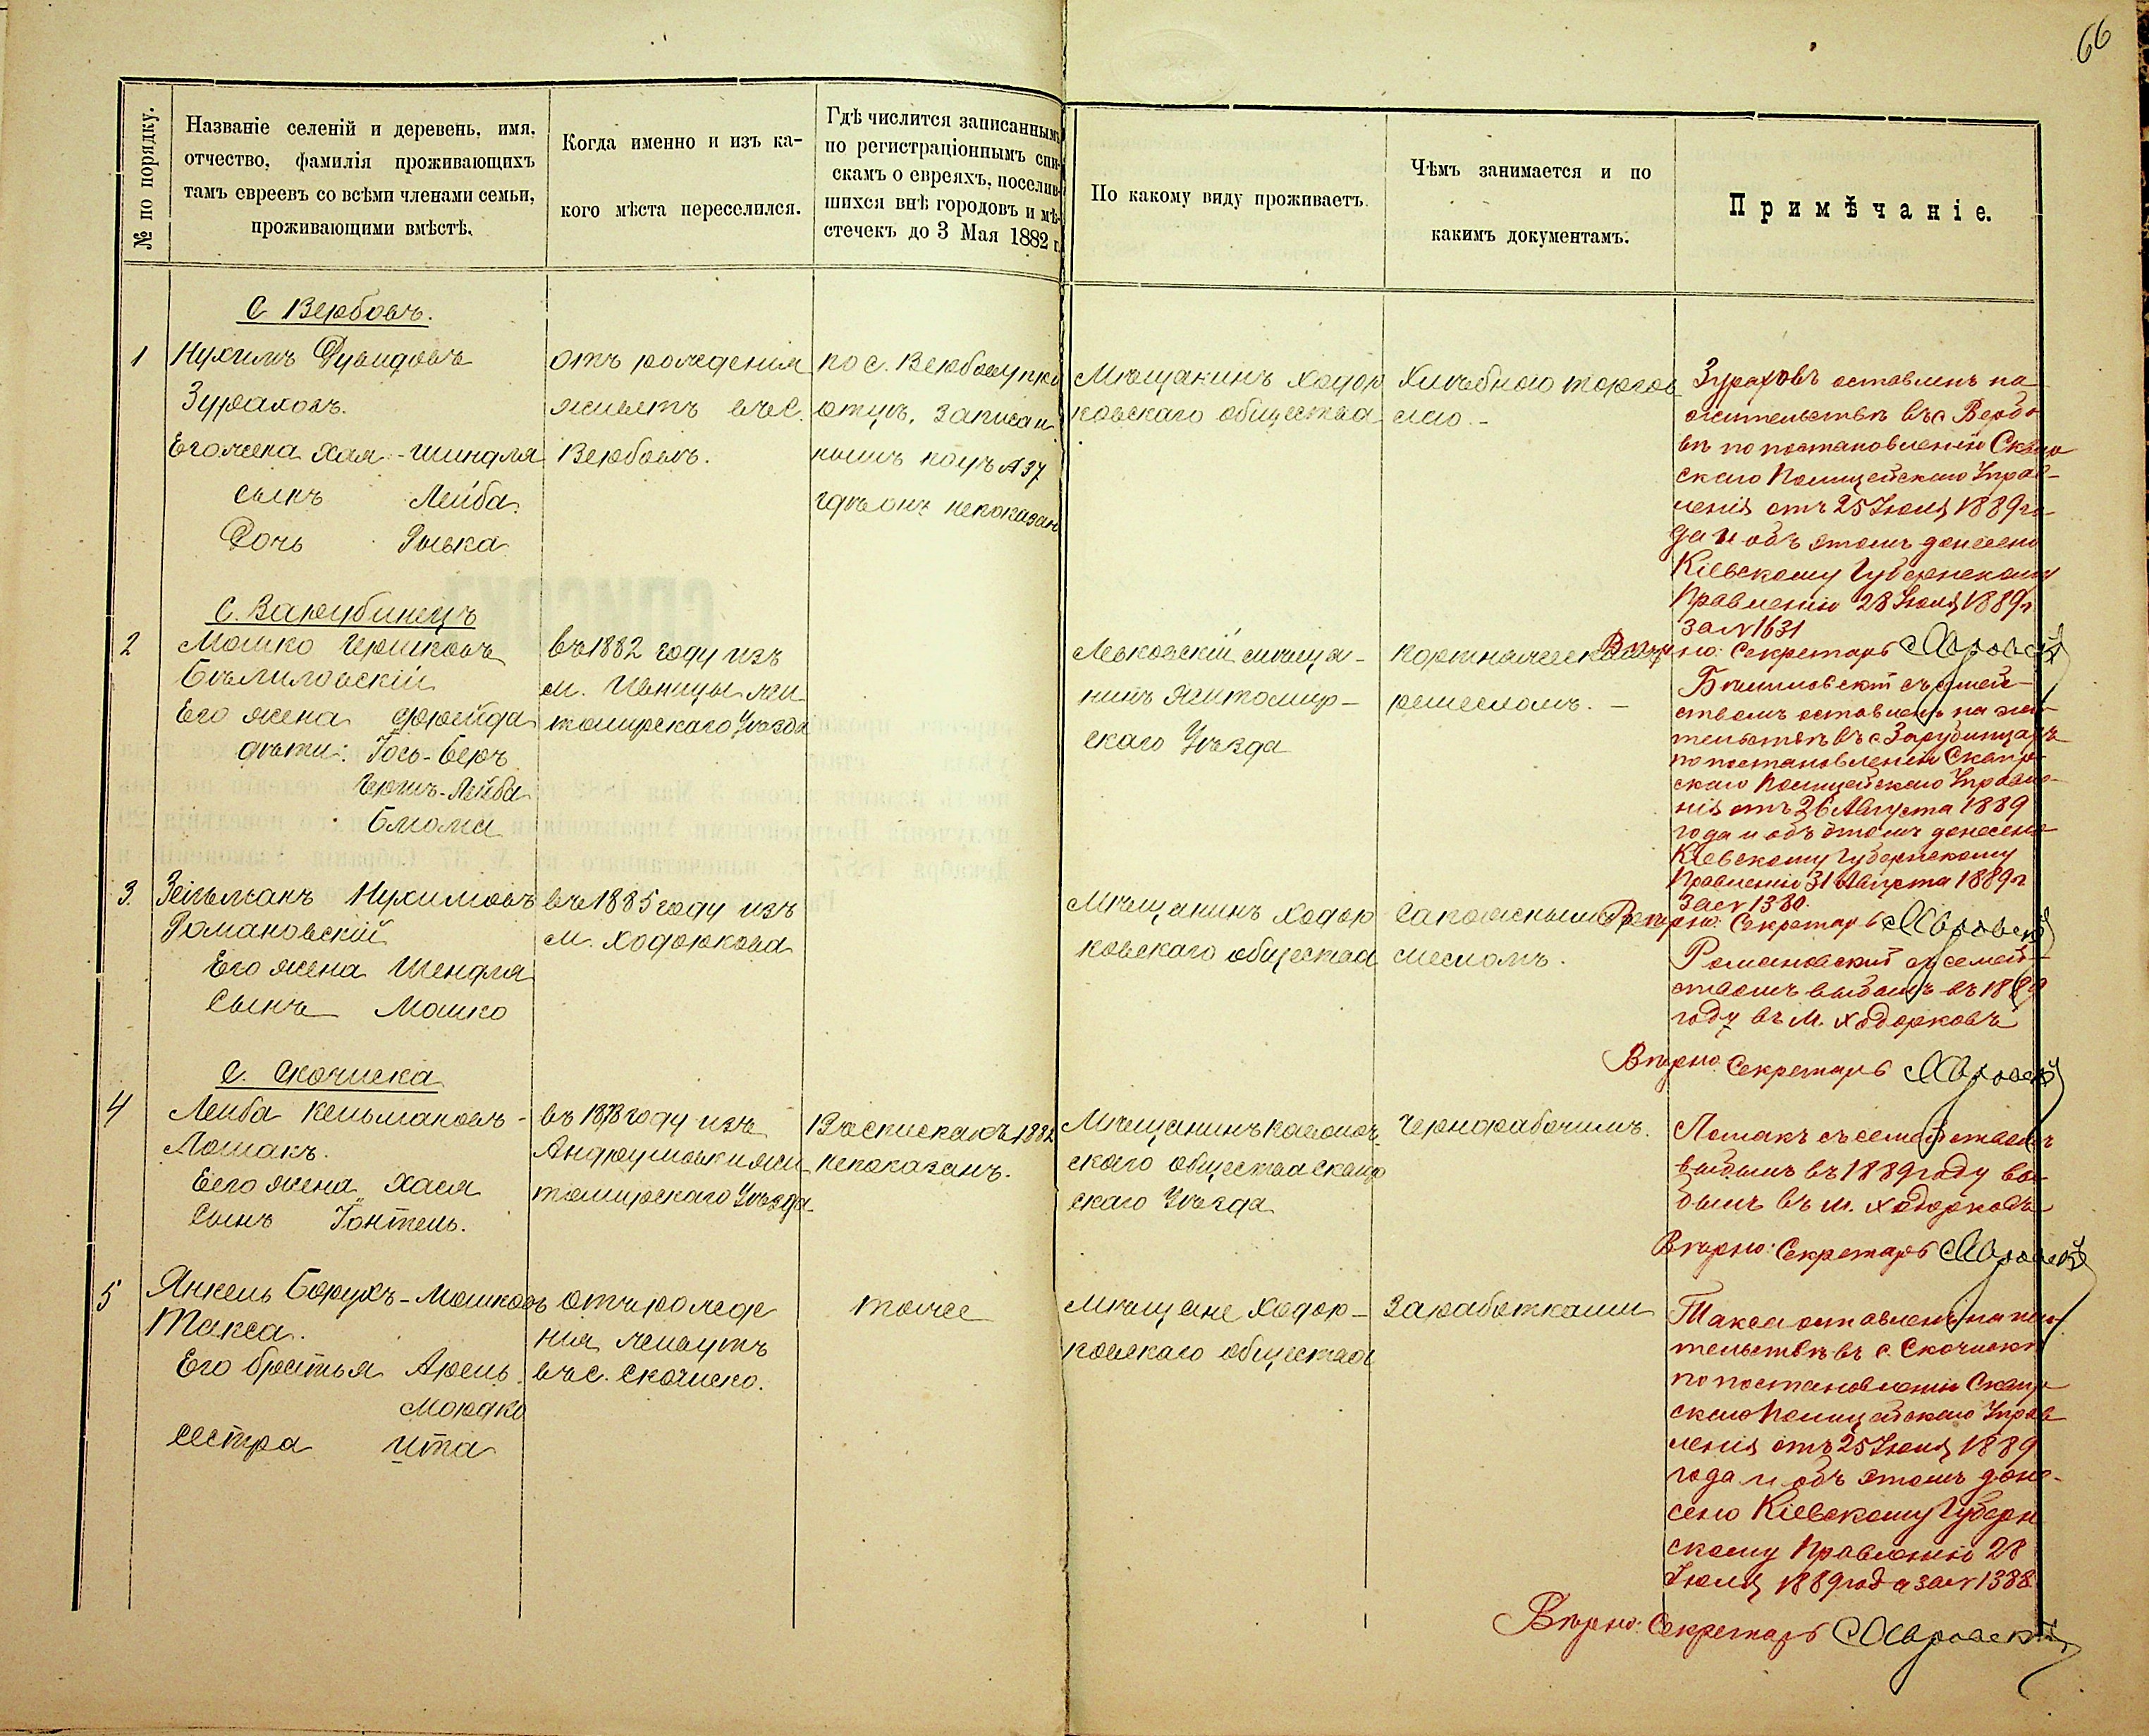 66
№ по порядку.
Названіе селеній и деревень, имя,
отчество, фамилія проживающихъ
тамъ евреевъ со всѣми членами семьи,
проживающими вмѣстѣ.
Когда именно и изъ ка-
кого мѣста переселился.
Гдѣ числится записаннымъ
по регистраціоннымъ спи-
скамъ о евреяхъ, поселив-
шихся внѣ городовъ и мѣ-
стечекъ до 3 Мая 1882 г.
По какому виду проживаетъ.
Чѣмъ занимается и по
какимъ документамъ.
Примѣчаніе.
С Вербовъ.
1
Нухимъ Дувидовъ
Зураховъ.
Его жена Хая-Шиндля
сынъ Лейба
Дочь Рывка
отъ рожденія
живетъ въ с.
Вербовъ.
по с. Вербову при
отцѣ, записан
нымъ подъ №37
гдѣ онъ непоказан
Мѣщанинъ Ходор
ковскаго общества
Хлѣбною торгов
лею.-
Зураховъ оставленъ на
жительствѣ въ с Вербо
вѣ по постановленію Сквир
скаго Полицейскаго Управ-
ленія отъ 25 Іюля 1889 го
да и объ этомъ донесено
Кіевскому Губернскому
Правленію 28 Іюля 1889 г.
за №1631
Вѣрно: Секретарь
С. Зарубинецъ
2
Мошко Гершковъ
Бѣлиловскій
Его жена Фрейда
дѣти: Іось-Беръ
Гершъ-Лейба
Блюма
въ 1882 году изъ
м. Ивницы жи-
томирскаго Уѣзда
Левковскій мѣща-
нинъ житомир-
скаго Уѣзда
портняжескимъ
ремесломъ. -
Бѣлиловскій съ семей-
ствомъ оставленъ на жи-
тельствѣ въ с Зарубинцахъ
по постановленію Сквир-
скаго Полицейскаго Управле-
нія отъ 26 Августа 1889
года и объ этомъ донесено
Кіевскому Губернскому
Правленію 31 Августа 1889 г.
за № 1380.
Вѣрно: Секретарь
3.
Зельманъ Нухимовъ
Романовскій
Его жена Шендля
Сынъ Мошко
въ 1885 году изъ
м. Ходоркова
Мѣщанинъ Ходор
ковскаго общества
Сапожнымъ ре
месломъ.
Романовскій съ семей-
ствомъ выбылъ въ 1889
году въ м. Ходорковъ
Вѣрно: Секретарь
С. Скочиска
4
Лейба Кельмановъ-
Лошакъ.
Его жена Хася
Сынъ Іонтель.
въ 1878 году изъ
Андрушовки жи-
томирскаго Уѣзда
Въ спискахъ 1882
непоказанъ.
Мѣщанинъ
скаго общества Сквир
скаго Уѣзда
Чернорабочимъ.
Лошакъ съ семействомъ
выбылъ въ 1889 году вы-
былъ въ м. Ходорковъ
Вѣрно: Секретарь
5
Янкель Борухъ-Мошковъ
Такса.
Его братья Арель
Мордко
сестра Ита
отъ рожде
нія живутъ
въ с. Скочиско.
тоже
Мѣщане Ходор-
ковскаго общества
Заработками
Такса оставленъ на жи-
тельствѣ въ с. Скочискѣ
по постановленію Сквир-
скаго Полицейскаго Управ
ленія отъ 25 Іюля 1889
года и объ этомъ доне-
сено Кіевскому Губерн
скому Правленію 28
Іюля 1889 года за № 1388.
Вѣрно: Секретарь